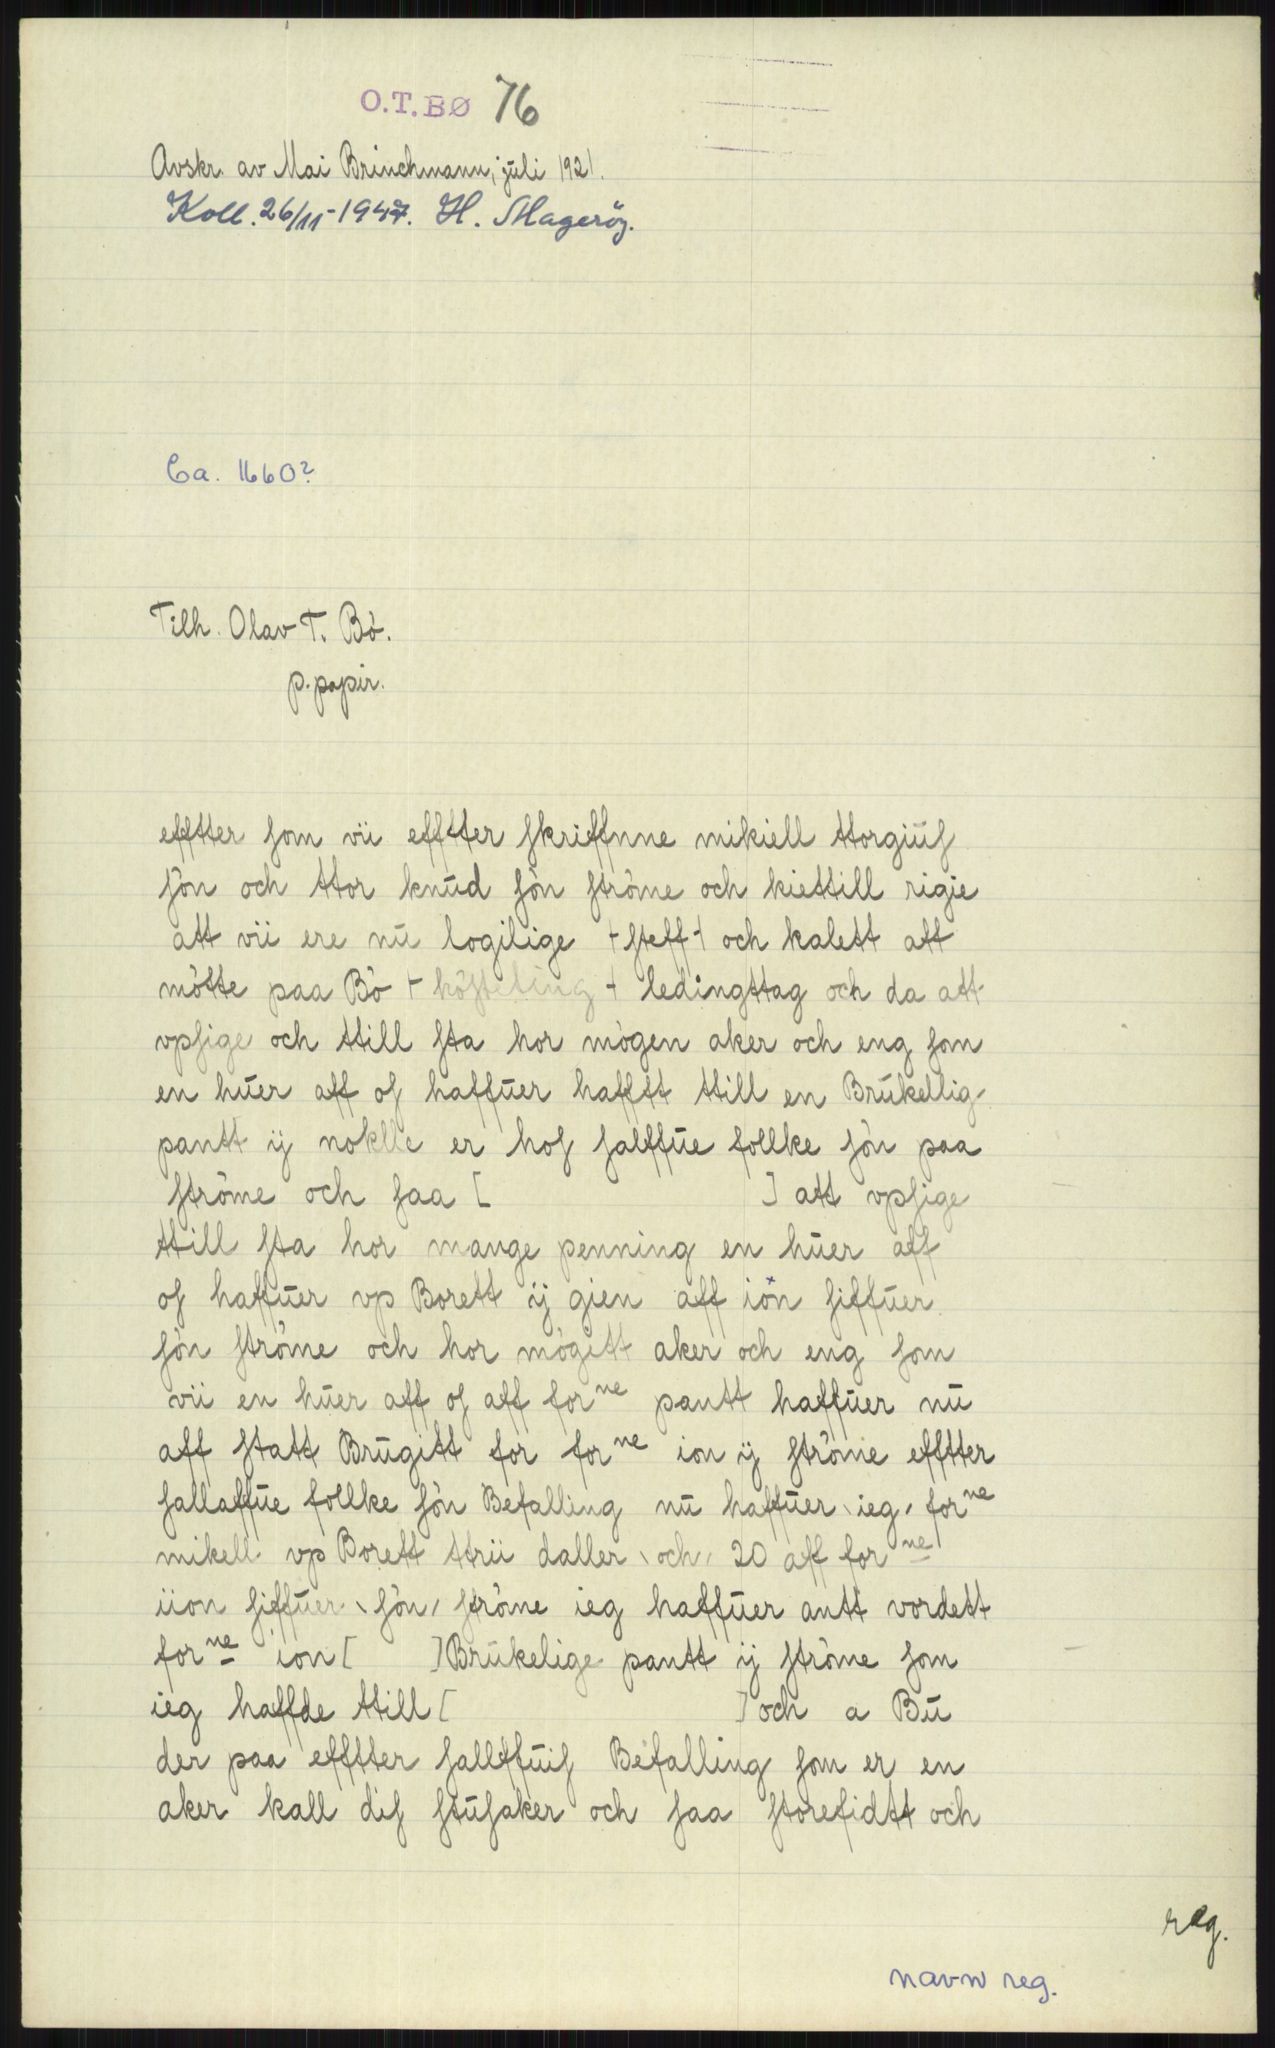 O.T.BØ 76
Avskr. av Mai Brinchmann, juli 1921.
Koll. 26/11-1947. H. Magerøy.
Ca. 1660?
Tilh. Olav T. Bö.
p. papir.
efftter som vii effter skriffnne mikiell ttorgiuſ
ſön och ttor knud ſön ſtröme och kiettill rigie
att vii ere nu logilige ⊢ſteff⊣ och kalett att
mötte paa Bö ⊢höſteting⊣ ledingttag och da att
vpſige och ttill ſta hor mögen aker och eng ſom
en huer aff oſ haffuer hafftt ttill en Brukellig
pantt ij noklle er hoſ ſalffue follke ſön paa
ſtröme och ſaa [ ] att vpſige
ttill ſta hor mange penning en huer aff
oſ haffuer vp Borett ij gien aff iön ſiffuer
ſön ſtröme och hor mögett aker och eng ſom
vii en huer aff oſ aff forne pantt haffuer nu
aff ſtatt Brugitt for forne ion ij ſtröme efftter
ſallaffue follke ſön Befalling nu haffuer ieg forne
mikell vp Borett ttrii daller och 20 aff forne
iion ſiffuer ſön ſtröme ieg haffuer antt vordett
forne ion [ ] Brukelige pantt ij ſtröme ſom
ieg haffde ttill [ ] och a Bu
der paa efftter ſallffuiſ Befalling ſom er en
aker kall diſ ſtuſaker och ſaa ſtorefidtt och
reg.
navn reg.